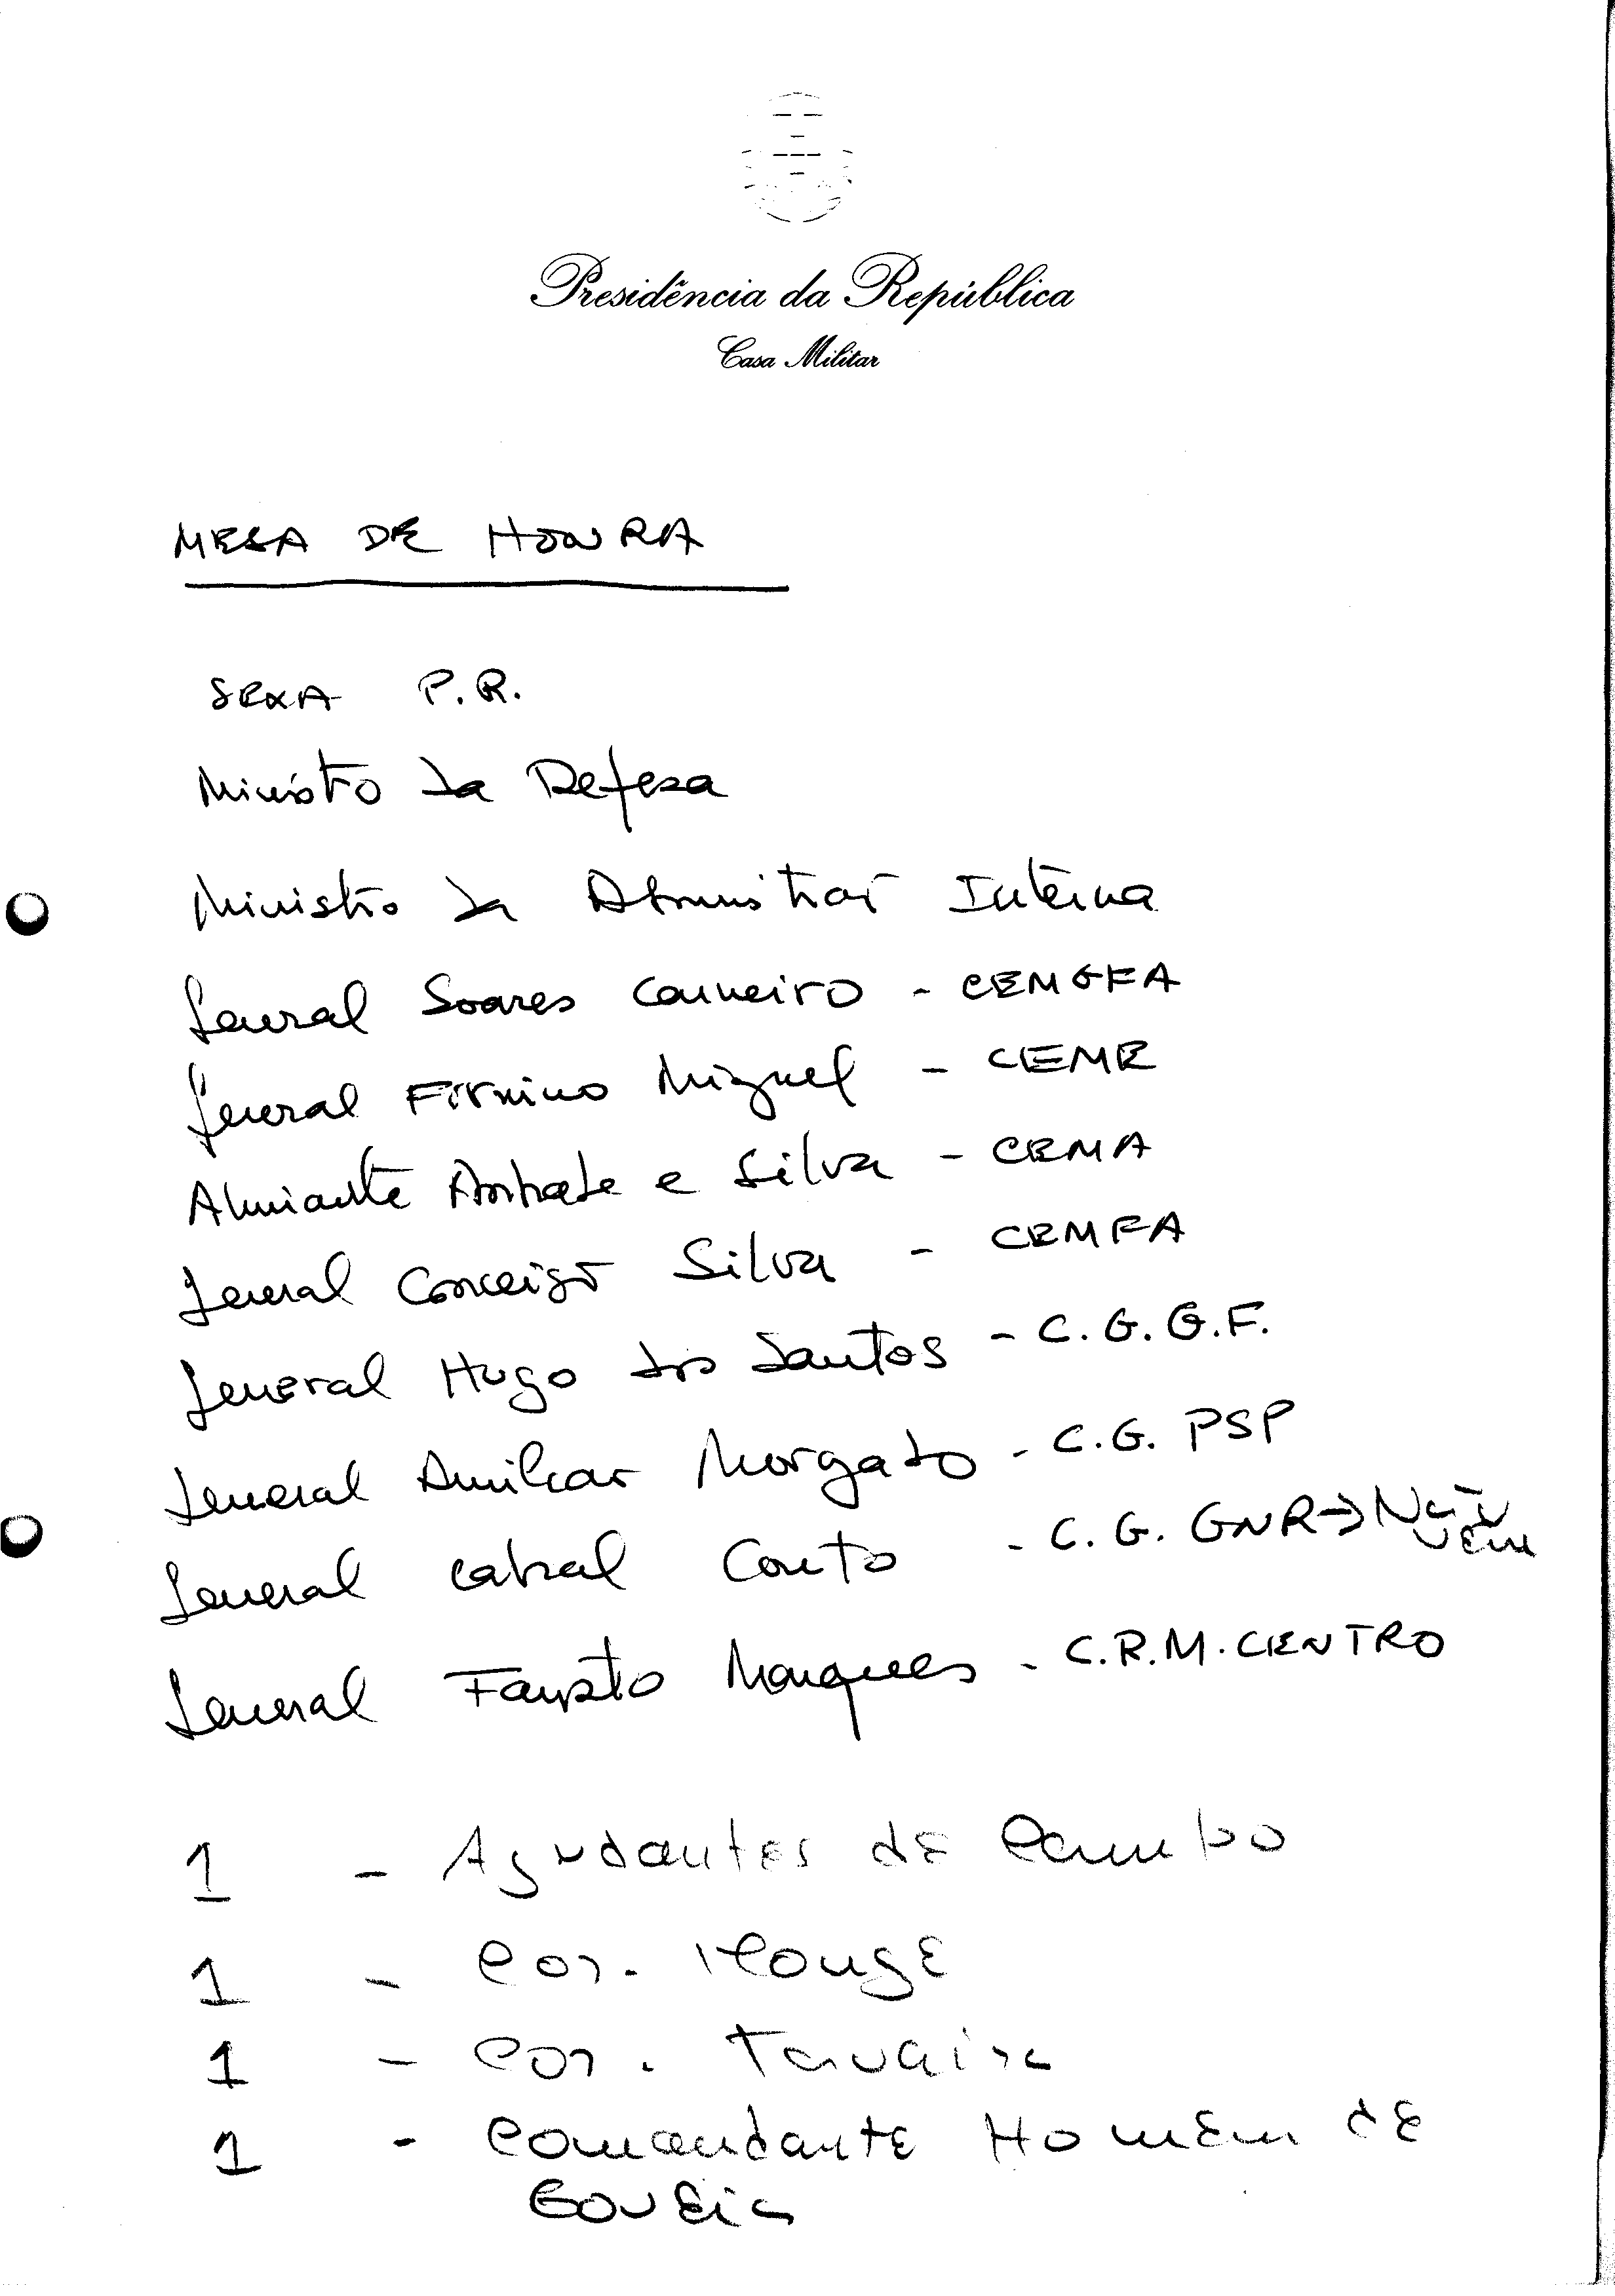 Presidência da República
Casa Militar
MESA DE HONRA
SEXA P.R.
Ministro da Defesa
Ministro da Administraç Interna
General Soares Carneiro - CEMGFA
General Firmino Miguel - CEME
Almirante Andrade e Silva - CEMA
General Conceição Silva - CEMFA
General Hugo dos Santos - C.G.G.F.
General Amilcar Morgado - C.G. PSP
General Cabral Couto - C.G. GNR → Não vem
General Fausto Marques - C.R.M. CENTRO
1 - Ajudantes de Campo
1 - Cor. Monge
1 - Cor.
1 - Comandante Homem de
Gouveia